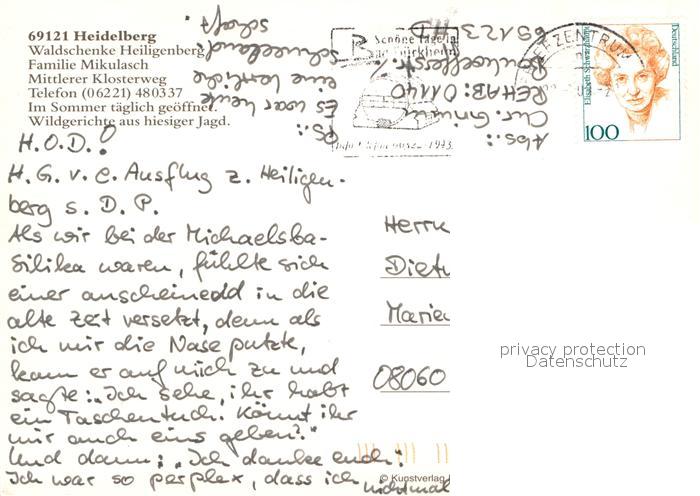 69121 Heidelberg
Waldschenke Heiligenberg
Familie Mikulasch
Mittlerer Klosterweg
Telefon (06221) 480337
Im Sommer täglich geöffnet.
Wildgerichte aus hiesiger Jagd.
H.O.D.!
H. G. v. e. Ausflug z. Heiligen-
berg s. D. P.
Als wir bei der Michaelsba-
silika waren, fühlte sich
einer anscheinedd in die
alte Zeit versetzt, denn als
ich mir die Nase putzte,
kam er auf mich zu und
sagte: „Ich sehe, ihr habt
ein Taschentuch. Könnt ihr
mir auch eins geben?"
Und dann: „Ich danke euch."
Ich war so perplex, dass ich nichtmal
PS.:
Es war heute
eine herrliche
Schneeland-
schaft.
Abs.:
REHAB: 01140
69123 H
Schöne Tage in
Bad Dürkheim
Elisabeth Schwarzhaupt
Deutschland
100
Herrn
Diet
Marie
08060
privacy protection
Datenschutz
© Kunstverlag